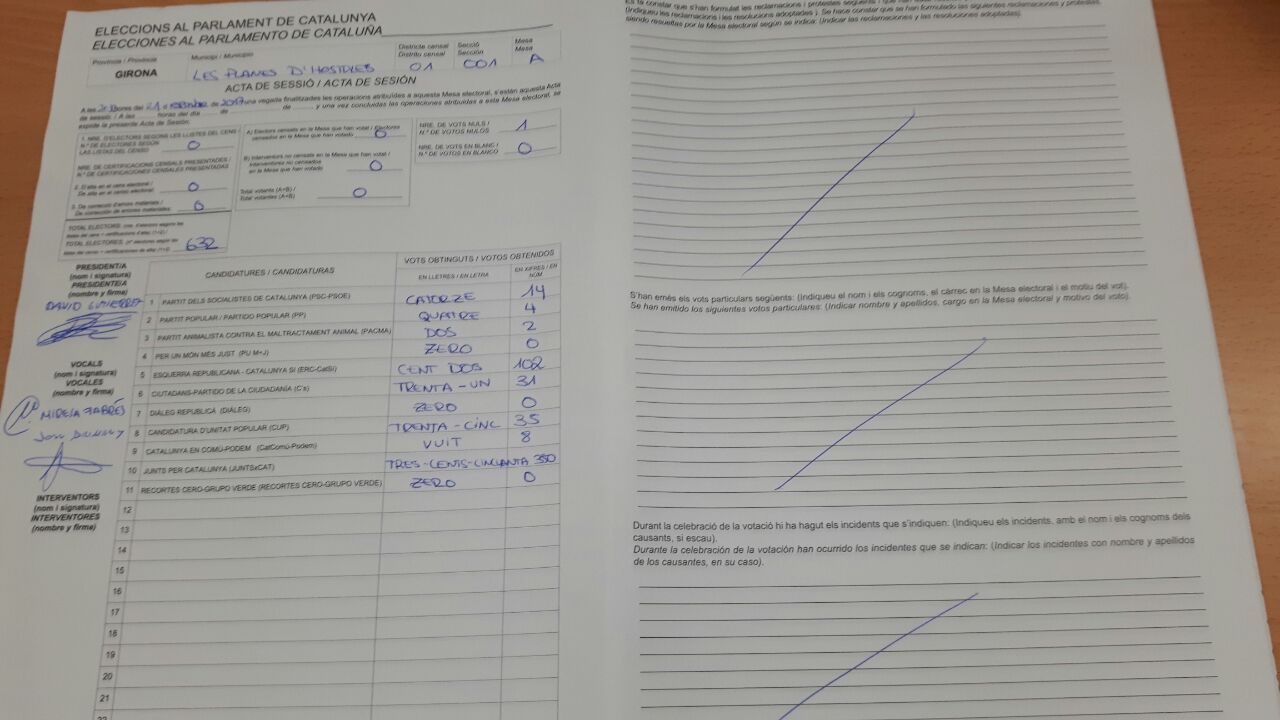 ELECCIONS AL PARLAMENT DE CATALUNYA
ELECCIONES AL PARLAMENTO DE CATALUÑA
Província / Provincia
Municipi / Municipio
Districte censal
Distrito censal
Secció
Sección
Mesa
Mesa
GIRONA
LES PLANES D'HOSTOLES
01
001
A
ACTA DE SESSIÓ / ACTA DE SESIÓN
A les hores del 21 de de 2017 una vegada finalitzades les operacions atribuïdes a aquesta Mesa electoral, s'estén aquesta Acta
de sessió. / A las horas del día de de y una vez concluidas las operaciones atribuidas a esta Mesa electoral, se
expide la presente Acta de Sesión.
1. NRE. D'ELECTORS SEGONS LES LLISTES DEL CENS /
N.º DE ELECTORES SEGÚN
LAS LISTAS DEL CENSO 0
NRE. DE CERTIFICACIONS CENSALS PRESENTADES /
N.º DE CERTIFICACIONES CENSALES PRESENTADAS
2. D'alta en el cens electoral /
De alta en el censo electoral 0
3. De correcció d'errors materials /
De corrección de errores materiales 0
TOTAL ELECTORS
TOTAL ELECTORES 632
A) Electors censats en la Mesa que han votat / Electores
censados en la Mesa que han votado 0
B) Interventors no censats en la Mesa que han votat /
Interventores no censados
en la Mesa que han votado 0
Total votants (A+B) /
Total votantes (A+B) 0
NRE. DE VOTS NULS /
N.º DE VOTOS NULOS 1
NRE. DE VOTS EN BLANC /
N.º DE VOTOS EN BLANCO 0
PRESIDENT/A
(nom i signatura)
PRESIDENTE/A
(nombre y firma)
DAVID
VOCALS
(nom i signatura)
VOCALES
(nombre y firma)
MIREIA FABRÉS
INTERVENTORS
(nom i signatura)
INTERVENTORES
(nombre y firma)
CANDIDATURES / CANDIDATURAS
VOTS OBTINGUTS / VOTOS OBTENIDOS
EN LLETRES / EN LETRA
EN XIFRES / EN NÚM
1 PARTIT DELS SOCIALISTES DE CATALUNYA (PSC-PSOE) CATORZE 14
2 PARTIT POPULAR / PARTIDO POPULAR (PP) QUATRE 4
3 PARTIT ANIMALISTA CONTRA EL MALTRACTAMENT ANIMAL (PACMA) DOS 2
4 PER UN MÓN MÉS JUST (PU M+J) ZERO 0
5 ESQUERRA REPUBLICANA - CATALUNYA SÍ (ERC-CatSí) CENT DOS 102
6 CIUTADANS-PARTIDO DE LA CIUDADANÍA (C's) TRENTA-UN 31
7 DIÀLEG REPUBLICÀ (DIÀLEG) ZERO 0
8 CANDIDATURA D'UNITAT POPULAR (CUP) TRENTA-CINC 35
9 CATALUNYA EN COMÚ-PODEM (CatComú-Podem) VUIT 8
10 JUNTS PER CATALUNYA (JUNTSxCAT) TRES-CENTS-CINCANTA 350
11 RECORTES CERO-GRUPO VERDE (RECORTES CERO-GRUPO VERDE) ZERO 0
12
13
14
15
16
17
18
19
20
21
22
(Indiqueu les reclamacions i les resolucions adoptades). Se hace constar que se han formulado las siguientes reclamaciones y protestas,
siendo resueltas por la Mesa electoral según se indica: (Indicar las reclamaciones y las resoluciones adoptadas).
S'han emès els vots particulars següents: (Indiqueu el nom i els cognoms, el càrrec en la Mesa electoral i el motiu del vot).
Se han emitido los siguientes votos particulares: (Indicar nombre y apellidos, cargo en la Mesa electoral y motivo del voto).
Durant la celebració de la votació hi ha hagut els incidents que s'indiquen: (Indiqueu els incidents, amb el nom i els cognoms dels
causants, si escau).
Durante la celebración de la votación han ocurrido los incidentes que se indican: (Indicar los incidentes con nombre y apellidos
de los causantes, en su caso).